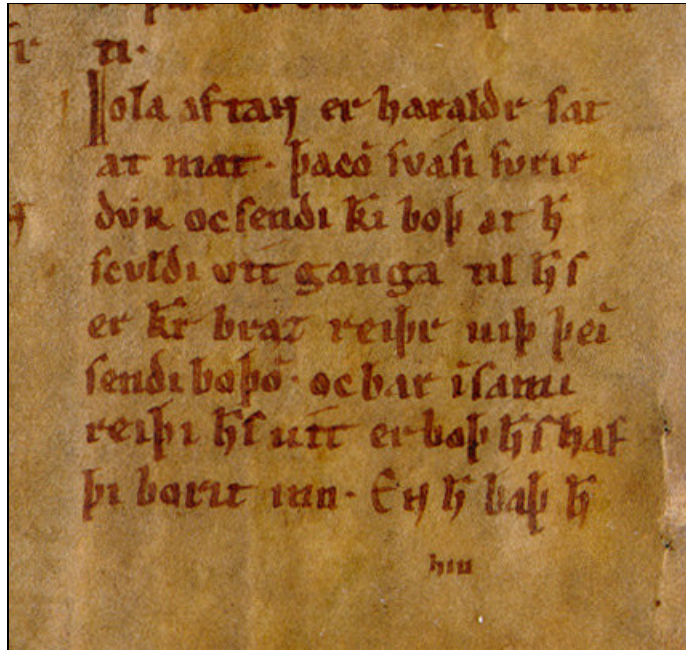 ti·
Iola aftaɴ er haraldr sat
at mat· þacō svási fvrir
dvʀ oc sendi k̄i boþ at h̄
sculdi vtt ganga til h̄s
er k̄r braz reiþr uiþ þei
sendi boþō· oc bar i sami
reiþi h̄s utt er boþ h̄s haf
þi borit inn· Eɴ h̄ baþ h̄
hiu